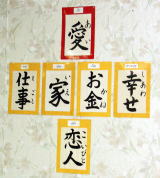 愛
あい
仕事
しごと
家
いえ
お金
かね
幸せ
しあわ
恋人
こいびと